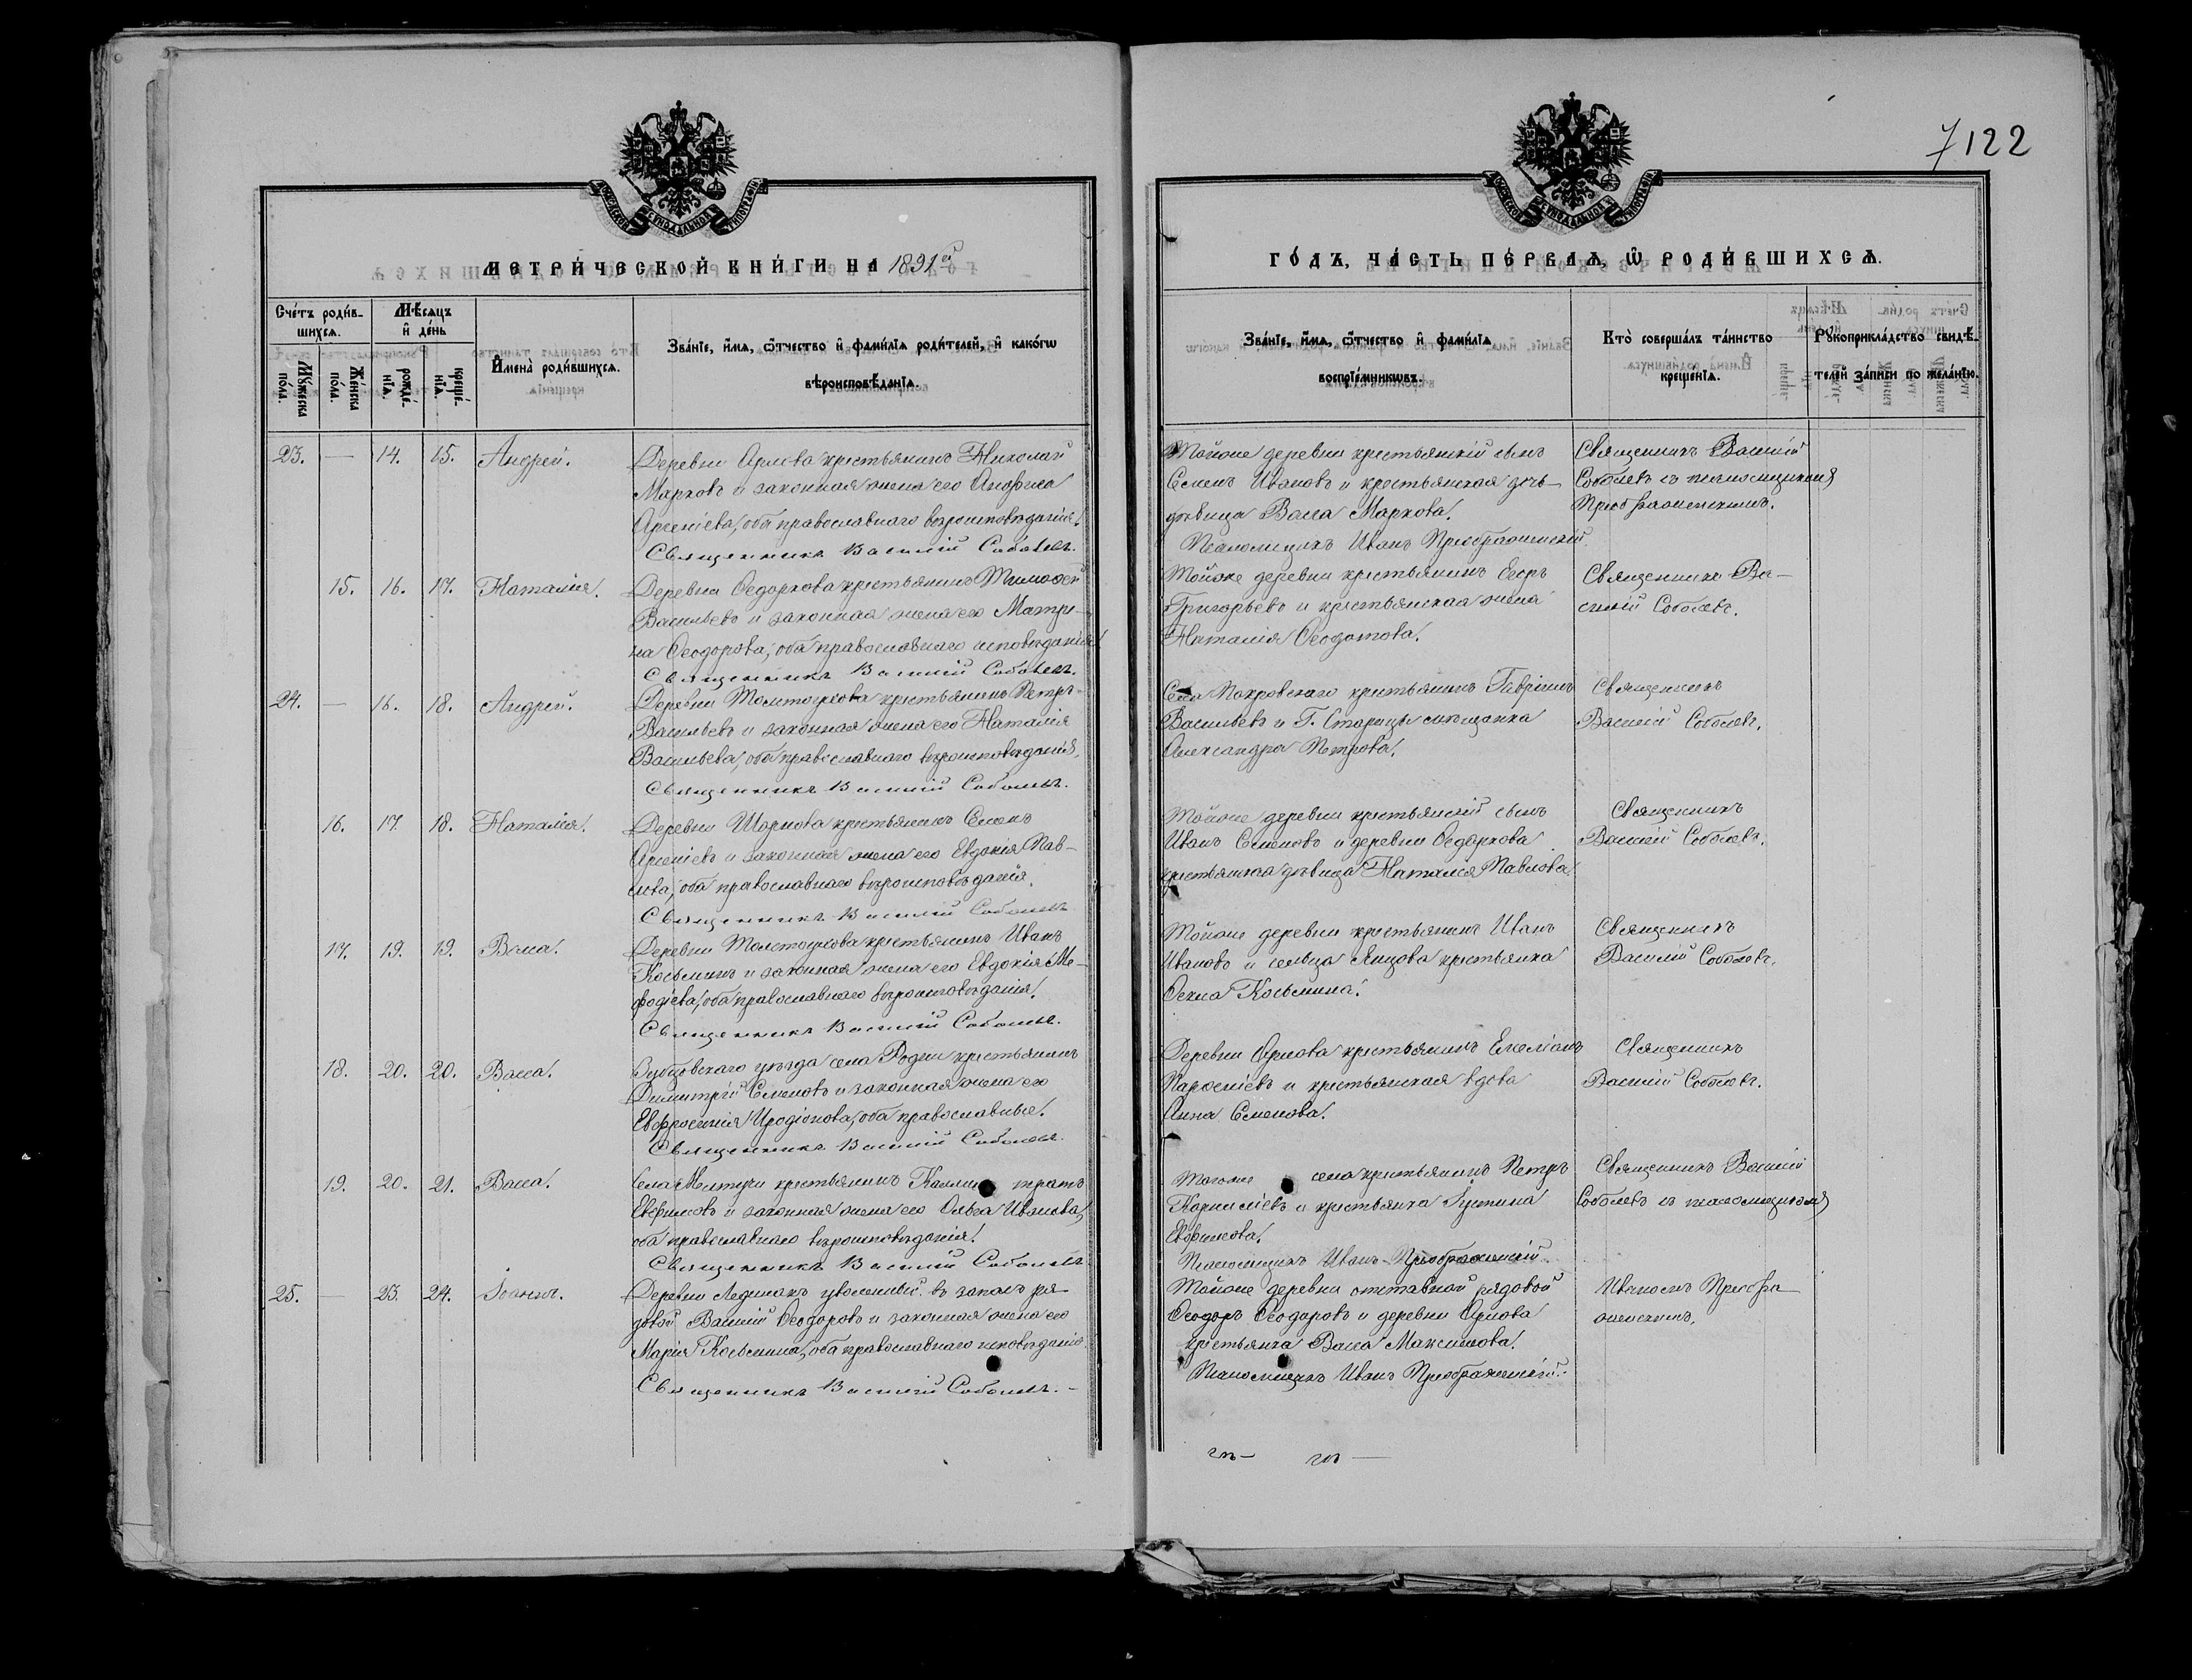 7122
МЕТРИ́ЧЕСКОЙ КНИ́ГИ НА 1891й
ГО́ДЪ, ЧА́СТЬ ПЕ́РВАЯ, Ѡ РОДИ́ВШИХСѦ.
Сче́тъ роди́в-
шихсѧ.
Мѣ́сѧцъ
и҆ де́нь
Му́жеска
по́ла.
Же́нска
по́ла.
рожде́-
нїѧ.
креще́-
нїѧ.
И҆мена̀ роди́вшихсѧ.
Зва́нїе, и҆́мѧ, ѻ҆́тчество и҆ фами́лїѧ роди́телей, и҆ како́гѡ
вѣроисповѣ́данїѧ.
Зва́нїе, и҆́мѧ, ѻ҆́тчество и҆ фами́лїѧ
воспрїе́мникѡвъ.
Кто̀ соверша́лъ та́инство
креще́нїѧ.
Рꙋкоприкла́дство свидѣ́-
телей за́писи по жела́нїю.
23. — 14. 15. Андрей.
Деревни Орлова крестьянинъ Николай
Марковъ и законная жена его Анфиса
Арсеніева, оба православнаго вѣроисповѣданія.
Священникъ Василій Соболевъ.
Тойже деревни крестьянскій сынъ
Семенъ Ивановъ и крестьянская дочь
дѣвица Васса Маркова.
Псаломщикъ Иванъ Преображенскій.
Священникъ Василій
Соболевъ съ псаломщикомъ
Преображенскимъ.
15. 16. 17. Наталія.
Деревни Федоркова крестьянинъ Тимофей
Васильевъ и законная жена его Матре-
на Ѳеодорова, оба православнаго исповѣданія.
Священникъ Василій Соболевъ.
Тойже деревни крестьянинъ Егоръ
Григорьевъ и крестьянская жена
Наталія Ѳеодотова.
Священникъ Ва-
силій Соболевъ.
24. — 16. 18. Андрей.
Деревни Толстоухова крестьянинъ Петръ
Васильевъ и законная жена его Наталія
Васильева, оба православнаго вѣроисповѣданія.
Священникъ Василій Соболевъ.
Села Покровскаго крестьянинъ Гавріилъ
Васильевъ и Г. Старицы мѣщанка
Александра Петрова.
Священникъ
Василій Соболевъ.
16. 17. 18. Наталія.
Деревни крестьянинъ Семенъ
Арсеніевъ и законная жена его Евдокія Пав-
лова, оба православнаго вѣроисповѣданія.
Священникъ Василій Соболевъ.
Тойже деревни крестьянскій сынъ
Иванъ Семеновъ и деревни Федоркова
крестьянская дѣвица Наталія Павлова.
Священникъ
Василій Соболевъ.
17. 19. 19. Васса.
Деревни Толстоухова крестьянинъ Иванъ
Косьминъ и законная жена его Евдокія Ме-
фодіева, оба православнаго вѣроисповѣданія.
Священникъ Василій Соболевъ.
Тойже деревни крестьянинъ Иванъ
Ивановъ и сельца крестьянка
Ѳекла Косьмина.
Священникъ
Василій Соболевъ.
18. 20. 20. Васса.
Зубцовскаго уѣзда села Родни крестьянинъ
Димитрій Семеновъ и законная жена его
Евфросинія Иродіонова, оба православные.
Священникъ Василій Соболевъ.
Деревни Орлова крестьянинъ Емеліанъ
и крестьянская вдова
Анна Семенова.
Священникъ
Василій Соболевъ.
19. 20. 21. Васса.
Села Мелтучи крестьянинъ
Евфимовъ и законная жена его Ольга Иванова,
оба православнаго вѣроисповѣданія.
Священникъ Василій Соболевъ.
Тогоже села крестьянинъ Петръ
Корниліевъ и крестьянка Іустина
Евфимова.
Псаломщикъ Иванъ Преображенскій.
Священникъ Василій
Соболевъ съ псаломщикомъ
25. — 23. 24. Іоаннъ.
Деревни уволенный въ запасъ ря-
довой Василій Ѳеодоровъ и законная жена его
Марія Косьмина, оба православнаго исповѣданія.
Священникъ Василій Соболевъ.
Тойже деревни отставной рядовой
Ѳеодоръ Ѳеодоровъ и деревни Орлова
крестьянка Васса Максимова.
Псаломщикъ Иванъ Преображенскій.
Иваномъ Преобра-
женскимъ.